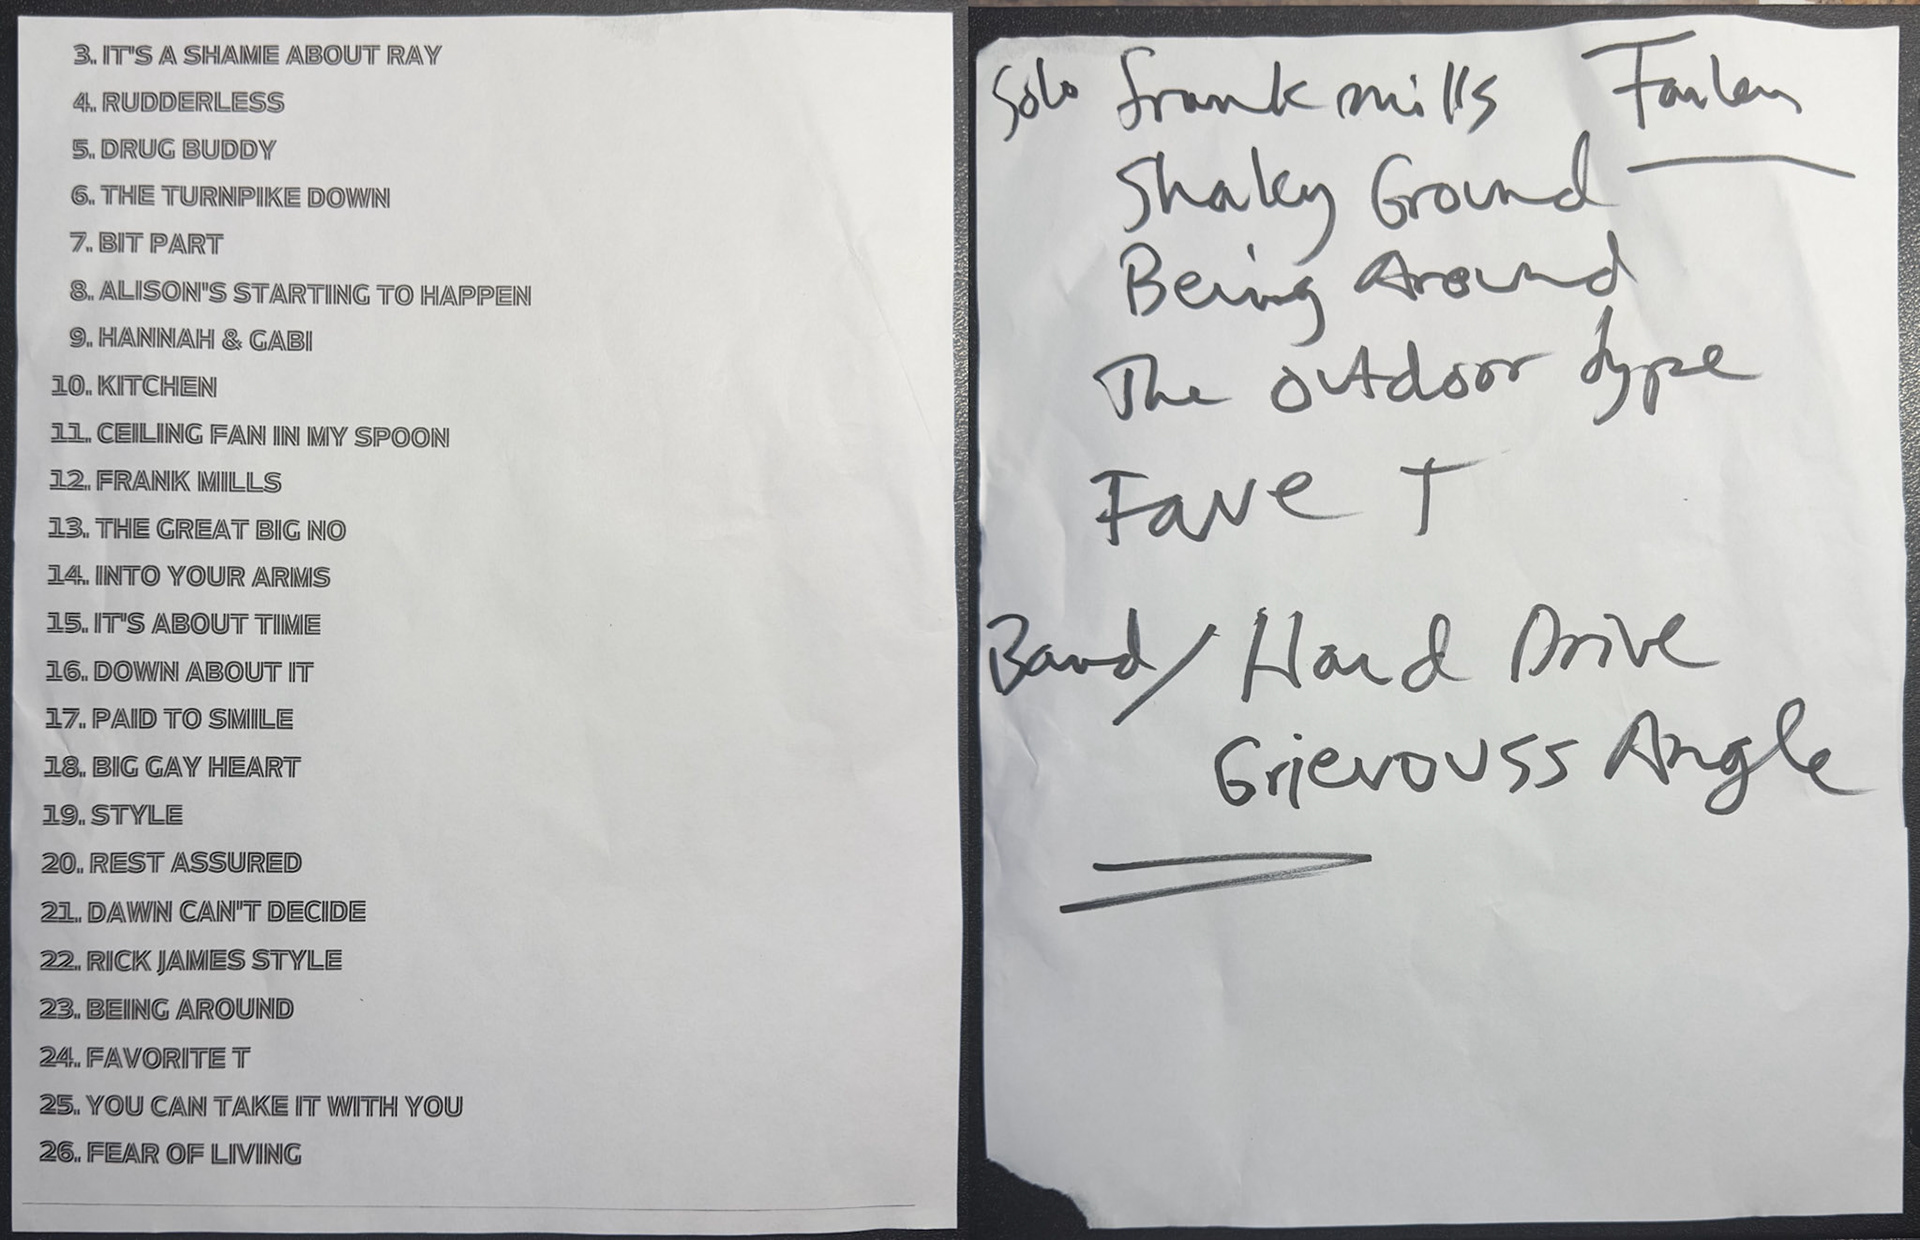 3. IT'S A SHAME ABOUT RAY
4. RUDDERLESS
5. DRUG BUDDY
6. THE TURNPIKE DOWN
7. BIT PART
8. ALISON'S STARTING TO HAPPEN
9. HANNAH & GABI
10. KITCHEN
11. CEILING FAN IN MY SPOON
12. FRANK MILLS
13. THE GREAT BIG NO
14. INTO YOUR ARMS
15. IT'S ABOUT TIME
16. DOWN ABOUT IT
17. PAID TO SMILE
18. BIG GAY HEART
19. STYLE
20. REST ASSURED
21. DAWN CAN'T DECIDE
22. RICK JAMES STYLE
23. BEING AROUND
24. FAVORITE T
25. YOU CAN TAKE IT WITH YOU
26. FEAR OF LIVING
Solo frank mills
Shaky Ground
Being Around
The outdoor type
Fave T
Band / Hard Drive
Grievouss Angle